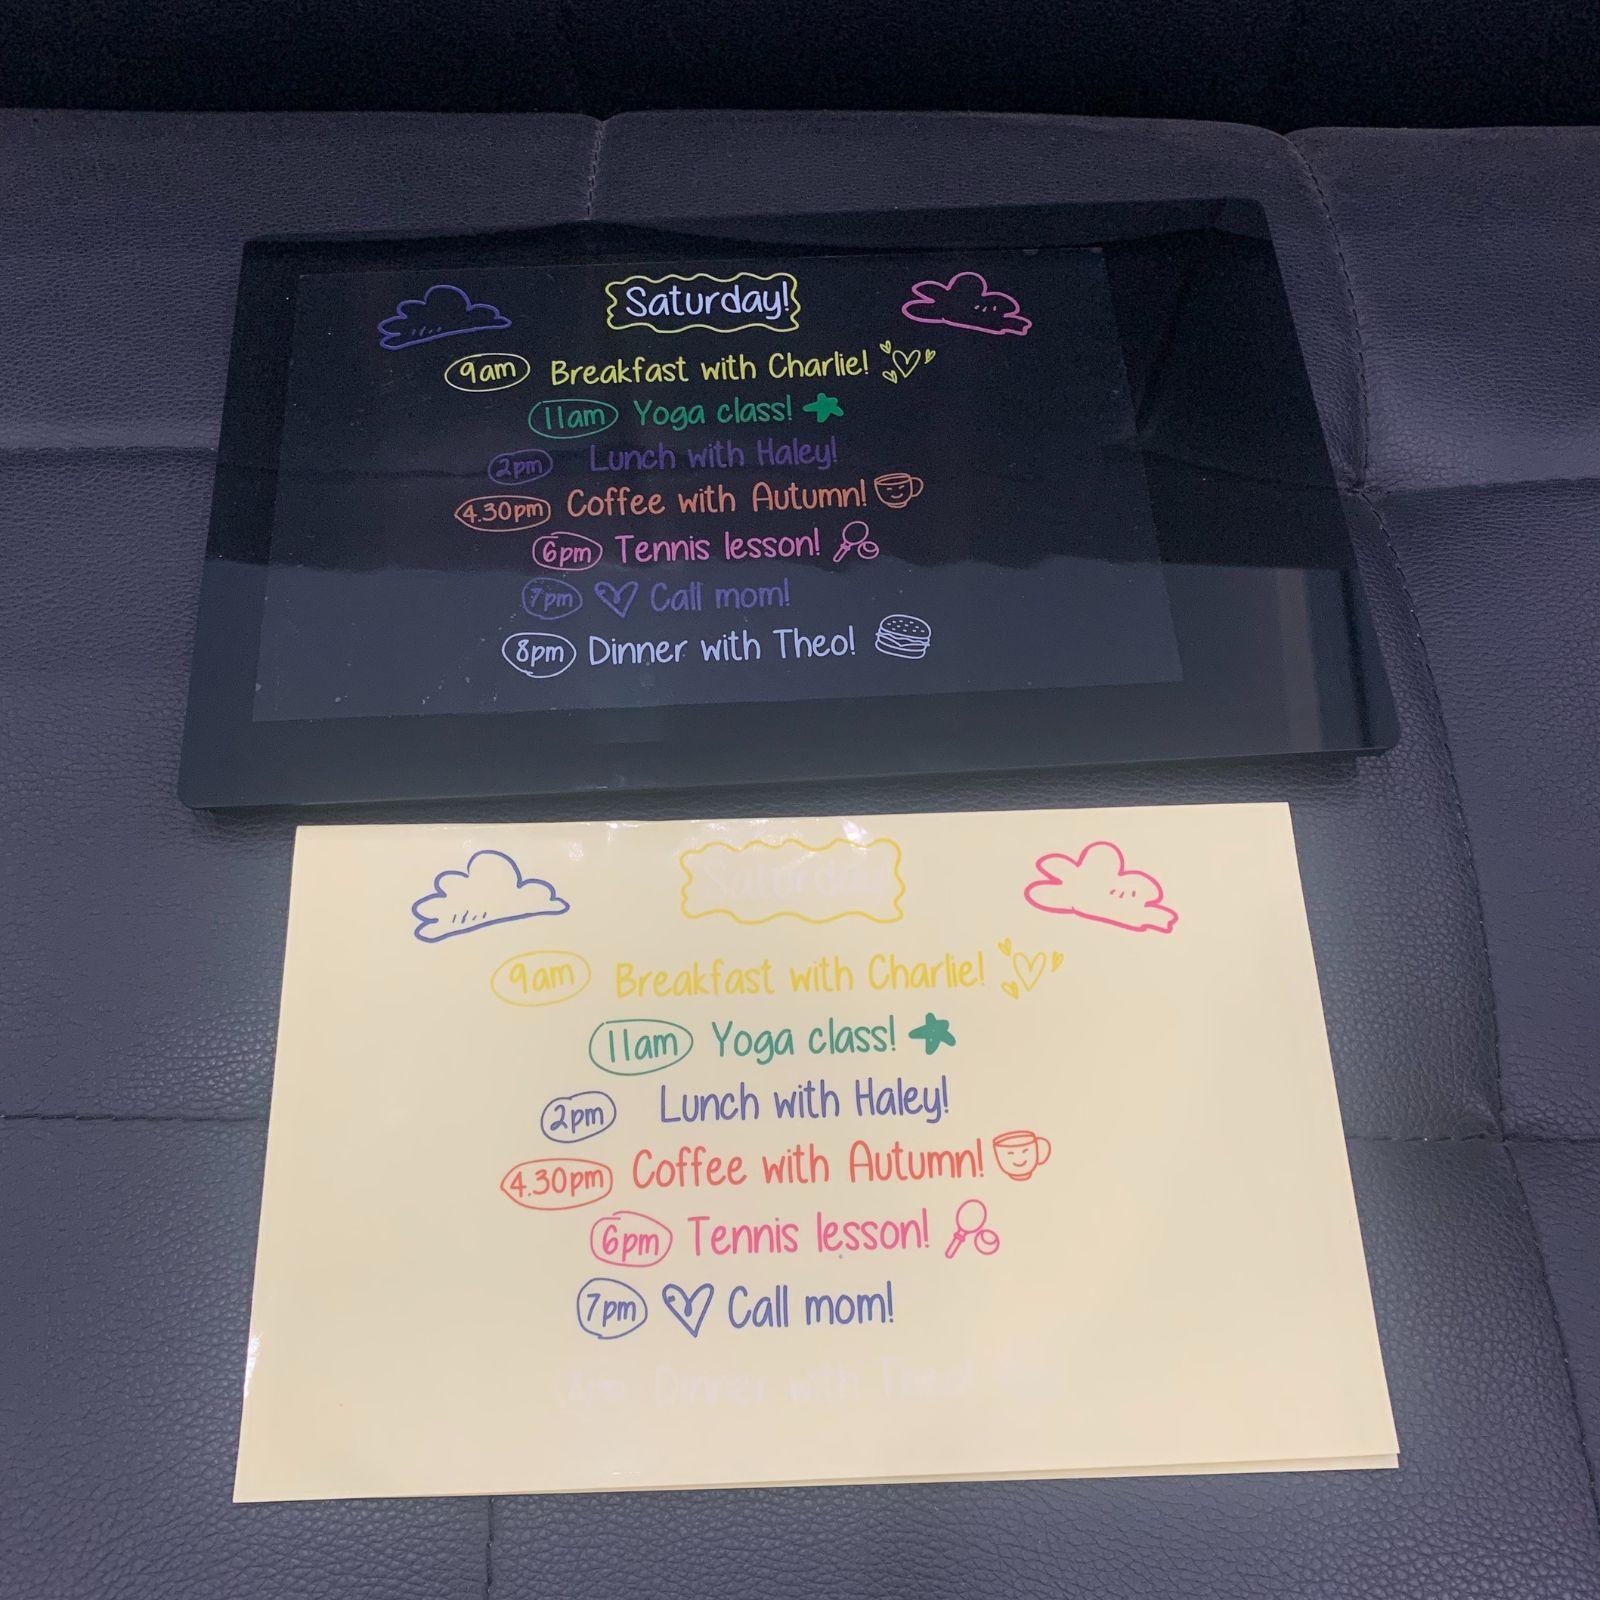 Saturday!
9am Breakfast with Charlie!
11am Yoga class!
2pm Lunch with Haley!
4.30pm Coffee with Autumn!
6pm Tennis lesson!
7pm Call mom!
8pm Dinner with Theo!
Saturday
9am Breakfast with Charlie!
11am Yoga class!
2pm Lunch with Haley!
4.30pm Coffee with Autumn!
6pm Tennis lesson!
7pm Call mom!
8pm Dinner with Theo!